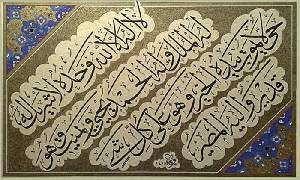 لا اله الا الله وحده لا شريك له
له الملك وله الحمد يحيي ويميت وهو
حي لا يموت بيده الخير وهو على كل شيء
قدير واليه المصير